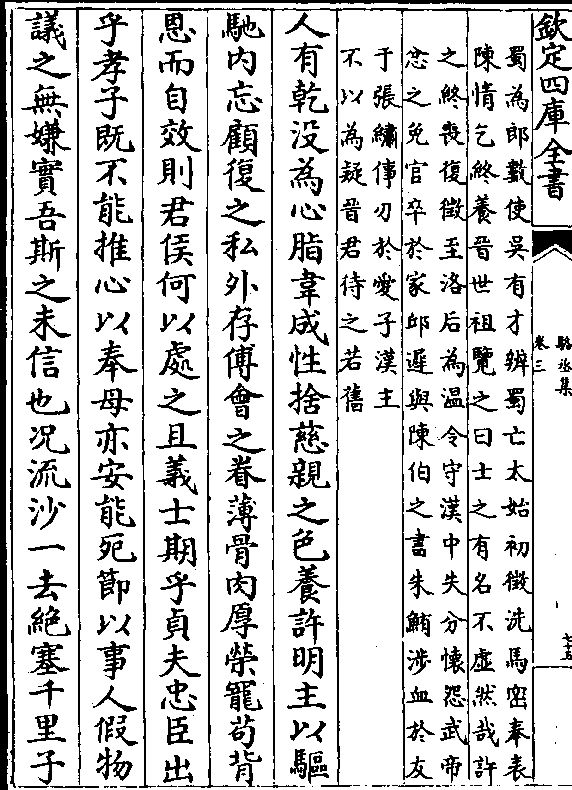 欽定四庫全書
駱丞集
卷三
七十五
蜀為郎數使吳有才辨蜀亡太始初徵洗馬密奉表
陳情乞終養晉世祖覽之曰士之有名不虛然哉許
之終喪復徵至洛后為温令守漢中失分懷怨武帝
忿之免官卒於家邱遲與陳伯之書朱鮪涉血於友
于張繡傳刃於愛子漢主
不以為疑晉君待之若舊
人有乾没為心脂韋成性捨慈親之色養許明主以驅
馳内忘顧復之私外存傅會之眷薄骨肉厚榮寵苟背
恩而自效則君侯何以處之且義士期乎貞夫忠臣出
乎孝子既不能推心以奉母亦安能死節以事人假物
議之無嫌實吾斯之未信也况流沙一去絶塞千里子